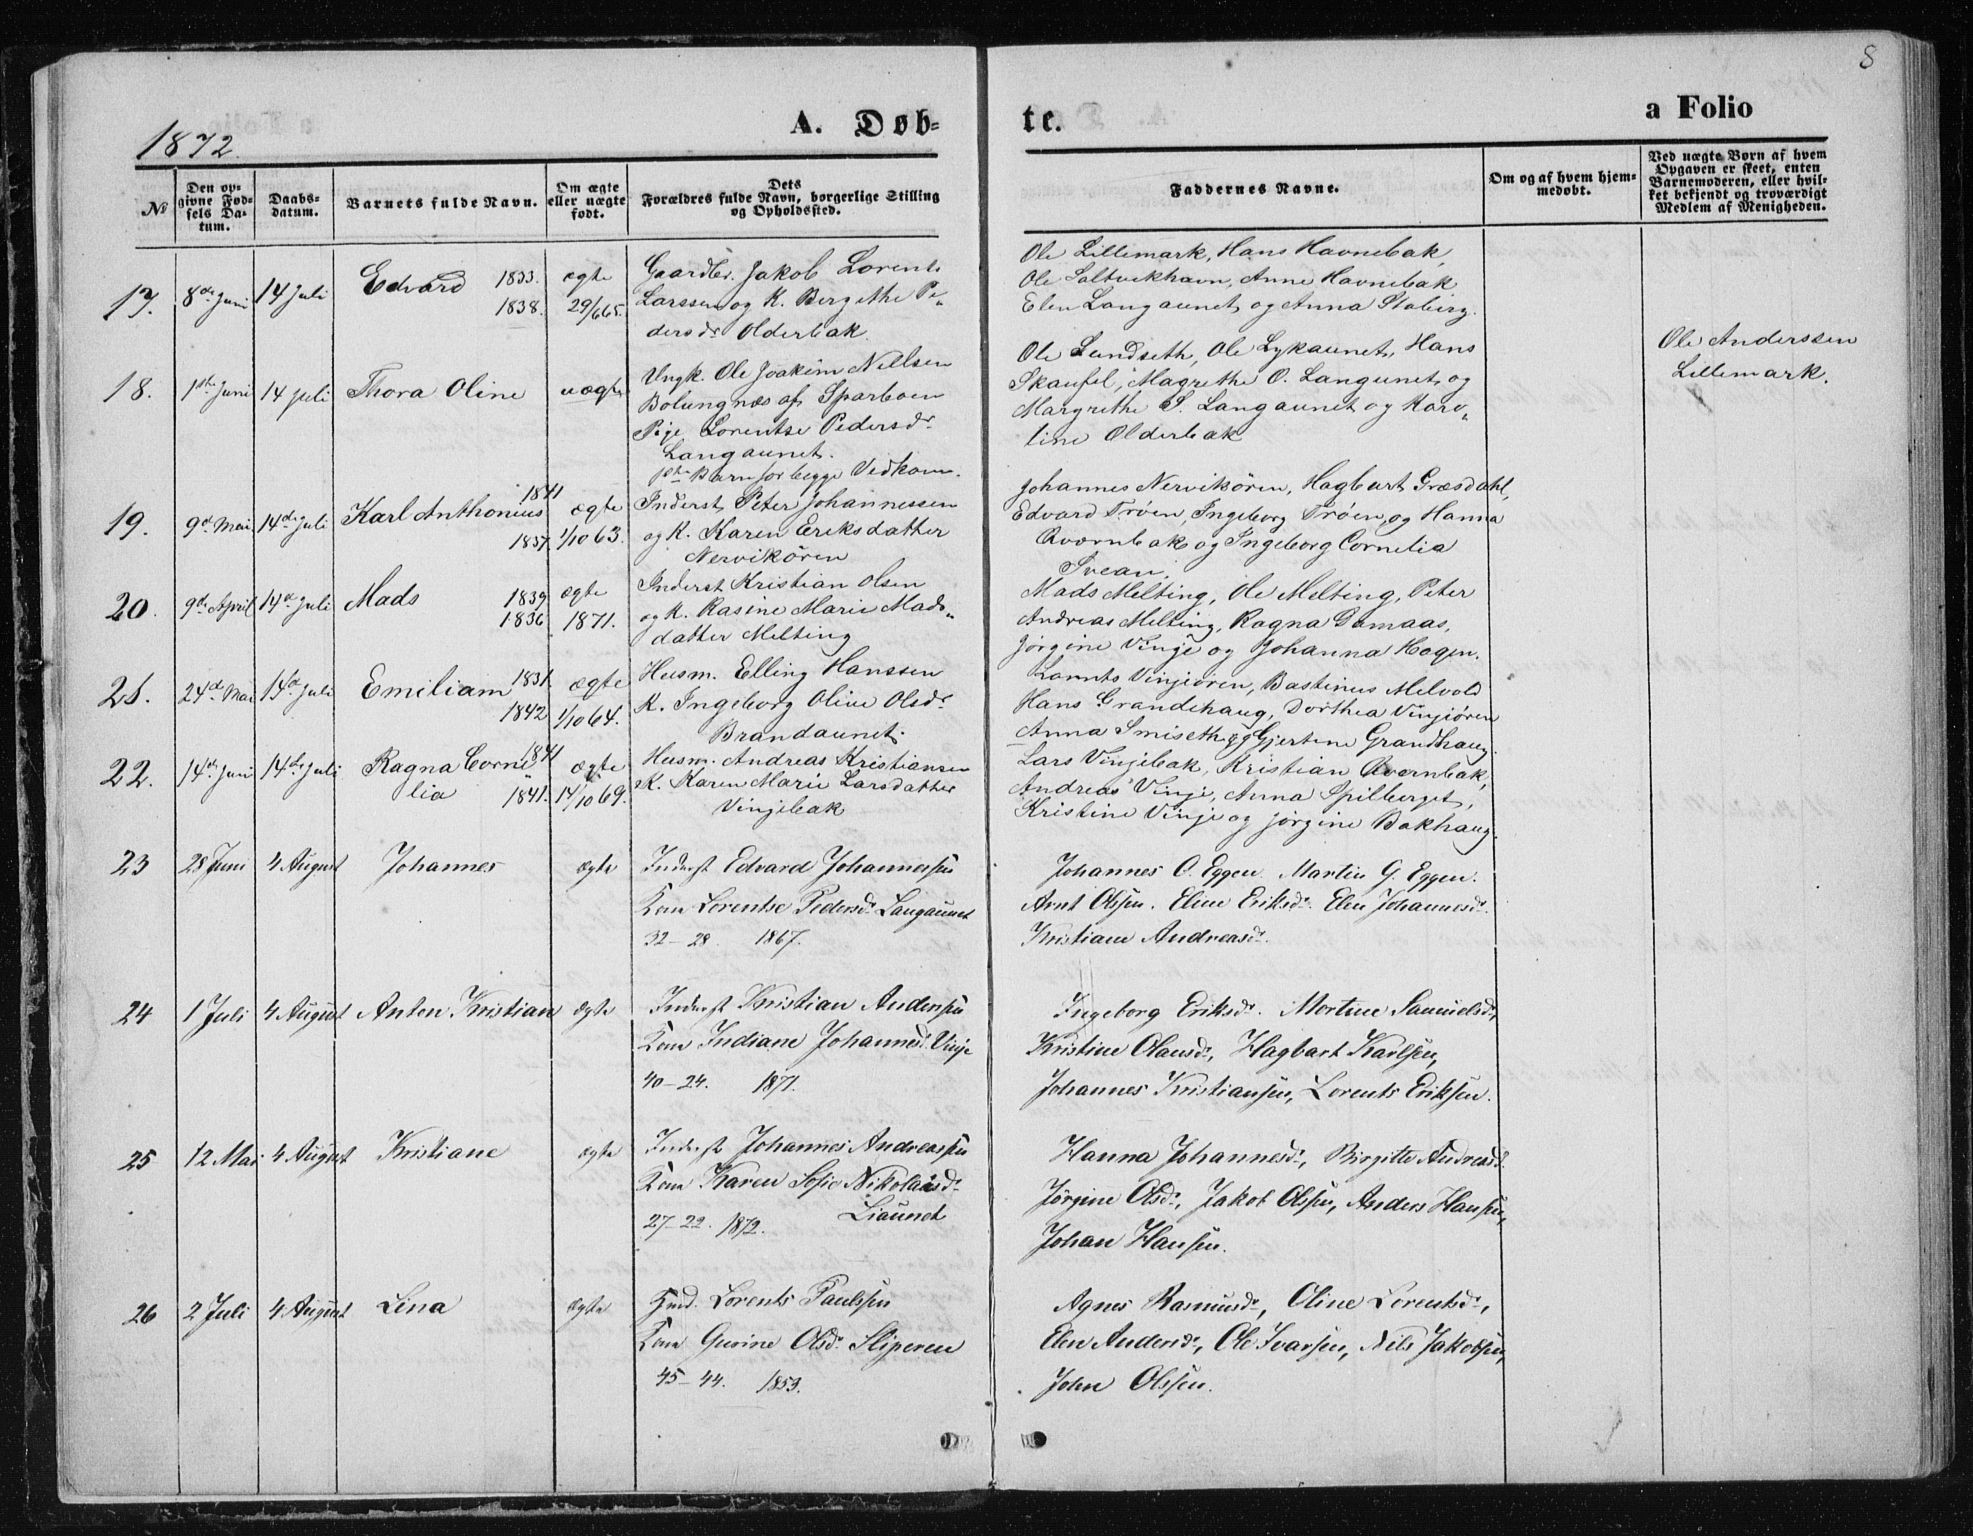 8
1872.
A. Døb-
te.
a Folio
No
Den op-
givne Fød-
sels Da-
tum.
Daabs-
datum.
Barnets fulde Navn.
Om ægte
eller uægte
født.
Dets
Forældres fulde Navn, borgerlige Stilling
og Opholdssted.
Faddernes Navne.
Om og af hvem hjem-
medøbt.
Ved uægte Børn af hvem
Opgaven er skeet, enten
Barnemoderen, eller hvil-
ket bekjendt og troværdigt
Medlem af Menigheden.
17. 8de Juni 14 Juli Edvard 1833. 1838. ægte 29/6 65.
Gaardbr. Jakob Lorents
Larssen og K. Bergithe Pe-
dersdr Olderbak.
Ole Lillemark, Hans Havnebak,
Ole Saltvikhavn, Anne Havnebak
Elen Langaunet og Anna Staberg.
18. 1ste Juni 14 Juli Thora Oline uægte
Ungk. Ole Joakim Nillsen
Bolungnæs af Sparboen
Pige Lorentse Pedersdr
Langaunet.
1ste Barn for begge Vedkom.
Ole Sundseth, Ole Lykaunet, Hans
Skaufel, Magrethe O. Langunet, og
Margrethe S. Langaunet og Karo-
line Olderbak
Ole Anderssen
Lillemark.
19. 9de Mai 14de Juli Karl Anthonius 1841 1837 ægte 1/10 63.
Inderst Peter Johannessen
og K. Karen Eriksdatter
Nervikören
Johannes Nervikören, Hagbart Græsdahl,
Edvard Trøen, Ingeborg Trøen, og Hanna
Qværnbak og Ingeborg Cornelia
Svean.
20. 9de April 14de Juli Mads 1839 1836 ægte 1871.
Inderst Kristian Olsen
og K. Rasine Marie Mads-
datter Melting
Mads Melting, Ole Melting, Peter
Andreas Melting, Ragna Damaas,
Jørgine Vinje og Johanna Hogen.
21. 24de Mai 14de Juli Emiliam 1831. 1842 ægte 1/10 64.
Husm. Elling Hanssen
K. Ingeborg Oline Olsdr
Brandaunet.
Lornts Vinjiören, Bastinus Melvold
Hans Grandehaug, Dorthea Vinjiören
Anna Smiseth og Gjertine Grandhaug.
22. 14de Juni 14de Juli Ragna Corne-
lia 1841 1841. ægte 14/10 69.
Husm. Andreas Kristiansen
K. Karen Marie Larsdatter
Vinjebak
Lars Vinjebak, Kristian Qvernbak,
Andreas Vinje, Anna Spilberget,
Kristine Vinje og Jörgine Bakhaug.
23 28 Juni 4 August Johannes ægte
Inderst Edvard Johannessen
Kone Lorentse Pedersdr Langaunet
32 - 28. 1867.
Johannes O. Eggen. Martin G. Eggen.
Arnt Olssen. Eline Eriksdr. Elen Johannesdr.
Kristiane Andreasdr.
24 1 Juli 4 August Anton Kristian ægte
Inderst Kristian Anderssen
Kone Indiane Johannesd. Vinje
40 - 24. 1871.
Ingeborg Eriksdr. Mortine Samuelsdr,
Kristine Olausdr, Hagbart Karlsen,
Johannes Kristiansen, Lorents Eriksen.
25 12 Mai 4 August Kristiane ægte
Inderst Johannes Andreassen
Kone Karen Sofie Nikolaisdr
Liaunet
27 - 22. 1872.
Hanna Johannesdr, Birgitte Andreasd.
Jørgine Olsdr, Jakob Olssen, Anders Hansen,
Johan Hansen.
26 2 Juli 4 August Lina ægte
Lorents Paulssen
Kone Gurine Olsdr. Sliperen
45 - 44. 1853.
Agnes Rasmusdr, Oline Lorentsdr,
Elen Andersdr, Ole Ivarsen, Nils Jakobsen,
John Olssen.